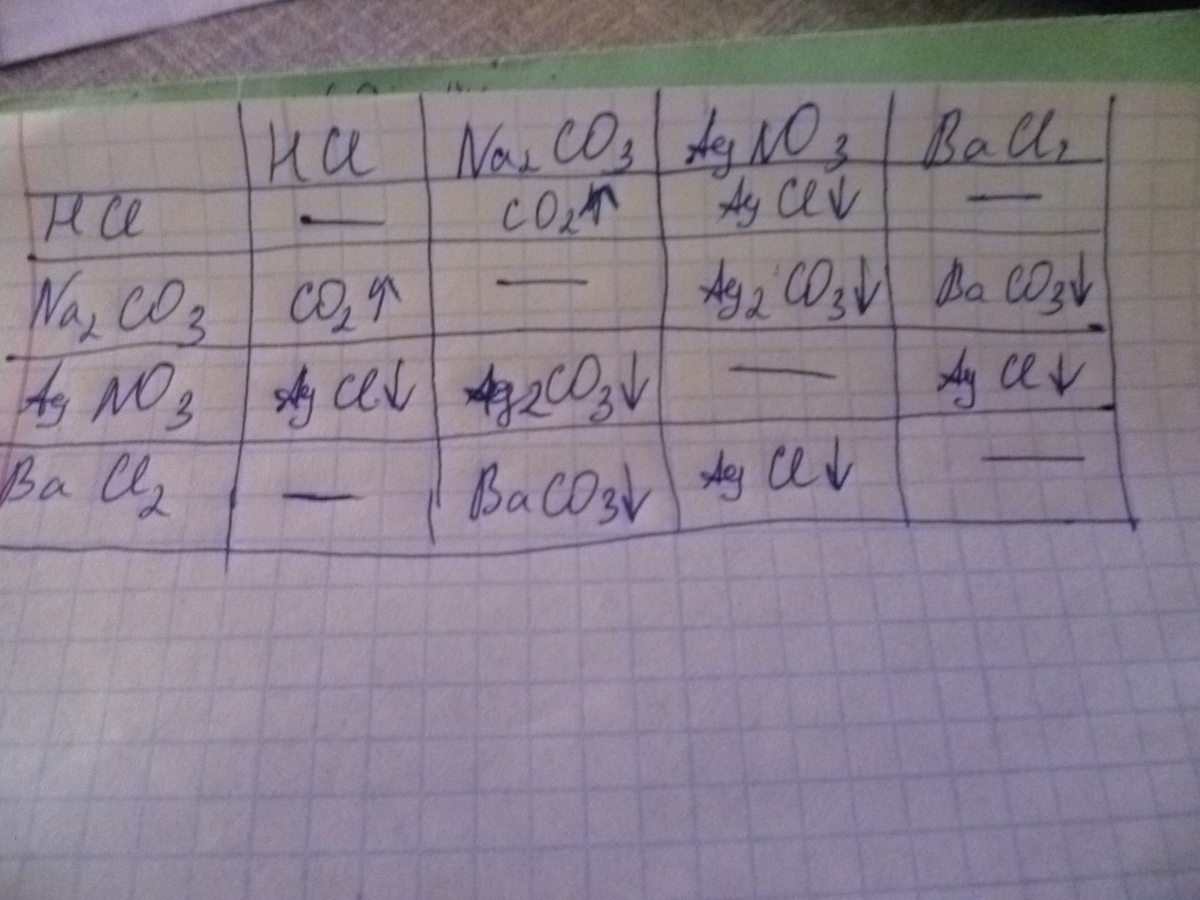 HCl Na₂CO₃ AgNO₃ BaCl₂
HCl — CO₂↑ AgCl↓ —
Na₂CO₃ CO₂↑ — Ag₂CO₃↓ BaCO₃↓
AgNO₃ AgCl↓ Ag₂CO₃↓ — AgCl↓
BaCl₂ — BaCO₃↓ AgCl↓ —